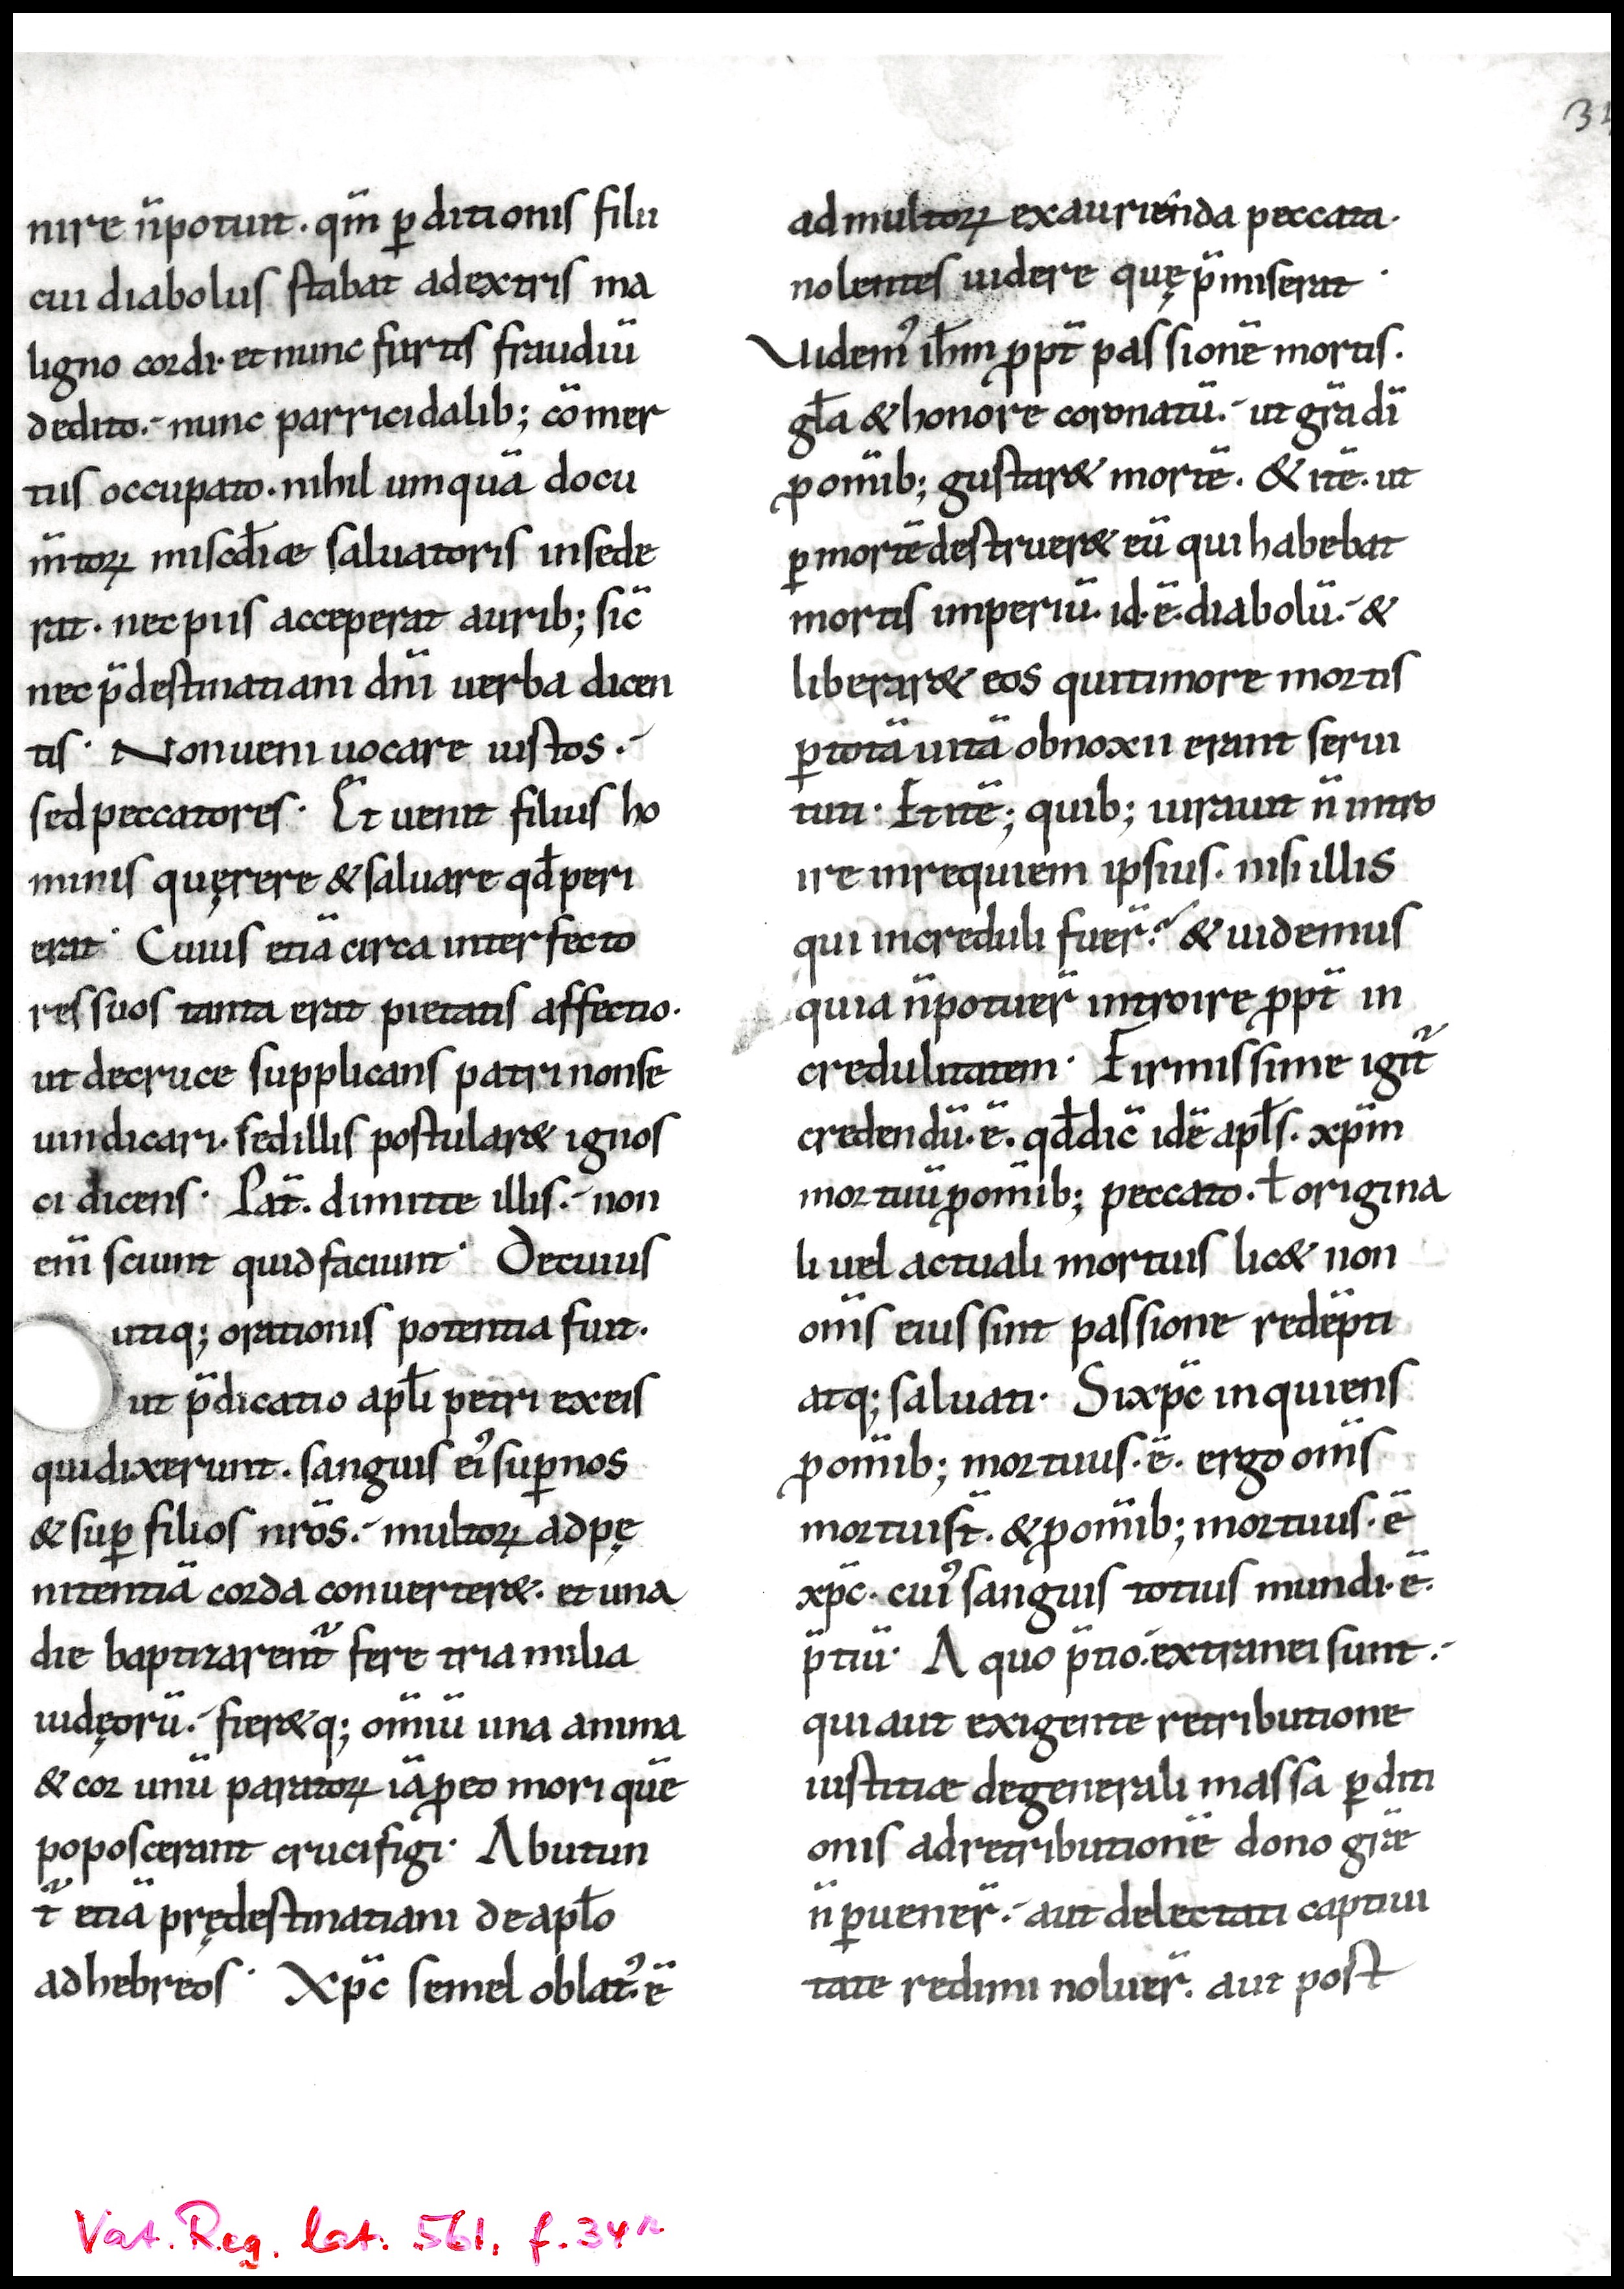 34
nire n̄ potuit. qm̄ ꝑditionis filii
cui diabolus stabat adextris ma
ligno cordi. et nunc furtis fraudiū
dedito. nunc parricidalib; cōmer
tiis occupato. nihil umquā docu
m̄toꝝ misc̄diæ saluatoris insede
rat. nec piis acceperat aurib; sic̄
nec p̄destinatiani dn̄i uerba dicen
tis. Non ueni uocare iustos.
sed peccatores. Et uenit filius ho
minis quęrere & saluare qđ peri
erat. Cuius etiā circa interfecto
res suos tanta erat pietatis affectio.
ut decruce supplicans patri non se
uindicari. sed illis postular& ignos
ci dicens. Pat̄. dimitte illis. non
eni̅ sciunt quid faciunt. Decuius
utiq; orationis potentia fuit.
ut p̄dicatio apłi petri exeis
qui dixerunt. sanguis ei᾽ suꝑ nos
& suꝑ filios nr̄os. multoꝝ ad pę
nitentiā corda conuerter&. et una
die baptizarent᷑ fere tria milia
iudęorū. fier&q; om̄iū una anima
& cor unū paratoꝝ iā ꝓ eo mori quē
poposcerant crucifigi. Abutun
t᷑ etiā prędestinatiani de apło
ad hebreos. Xp̄c semel oblat᾽. ē
ad multoꝝ exaurienda peccata.
nolentes uidere quę p̄miserat.
Uidem᾽ ih̄m ꝓpt̄ passionē mortis.
gła & honore coronatū. ut gr̄a dī
ꝓ om̄ib; gustar& mortē. & itē. ut
ꝑ mortē destruer& eū qui habebat
mortis imperiū. id. ē. diabolū. &
liberar& eos qui timore mortis
ꝑ totā uitā obnoxii erant serui
tuti. Et itē; quib; iurauit n̄ intro
ire in requiem ipsius. nisi illis
qui increduli fuer̄. & uidemus
quia n̄ potuer̄ introire ꝓpt̄ in
credulitatem. Firmissime igit᷑
credendū. ē. qđ dic̄ idē apłs. xp̄m
mortuū ꝓ om̄ib; peccato. ł origina
li uel actuali mortuis lic& non
om̄s eius sint passione redēpti
atq; saluati. Si xp̄c inquiens
ꝓ om̄ib; mortuus. ē. ergo om̄s
mortui st̄. & ꝓ om̄ib; mortuus. ē
xp̄c. cui᾽ sanguis totius mundi. ē.
p̄tiū. A quo p̄tio. extranei sunt.
qui aut exigente retributione
iustitiæ de generali massa ꝑditi
onis ad retributionē dono gr̄æ
n̄ ꝑuener̄. aut delectati captiui
tate redimi noluer̄. aut post
Vat. Reg. lat. 561, f. 34r